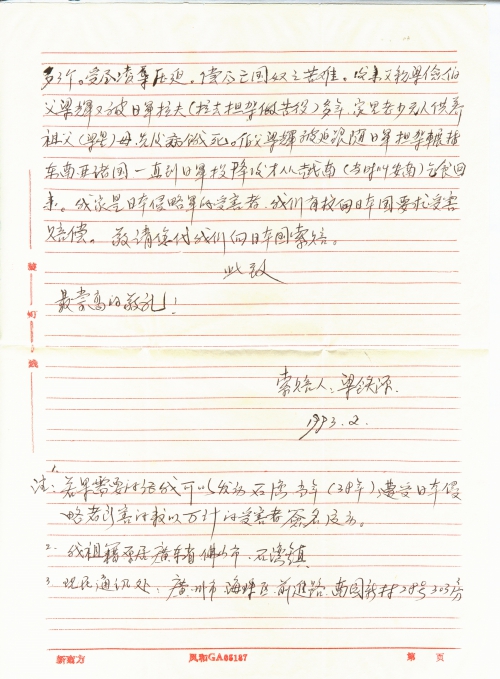 多3个。受尽凌辱压迫。偿尽亡国奴之苦难。后来父亲梁俭伯
父梁辉又被日军拉夫(拉去担架做苦役)多年,家里老少无人供养
祖父(梁星)母先后病饿死。伯父梁辉被迫跟随日军担架辗转
东南亚诸国一直到日军投降后才从越南(当时叫安南)乞食回
来。我家是日本侵略军的受害者,我们有权向日本国要求受害
赔偿。敬请您代我们向日本国索赔。
此致
最崇高的敬礼!
索赔人:梁铁
1993.2.
注:1.若果需要的话我可以发动石湾当年(38年)遭受日本侵
略者到害的数以万计的受害者签名反方。
2. 我祖籍原居广东省佛山市石湾镇
3. 现在通讯处:广州市海珠区前进路南园新村28号303房
新南方
凤和GA05187
第 页